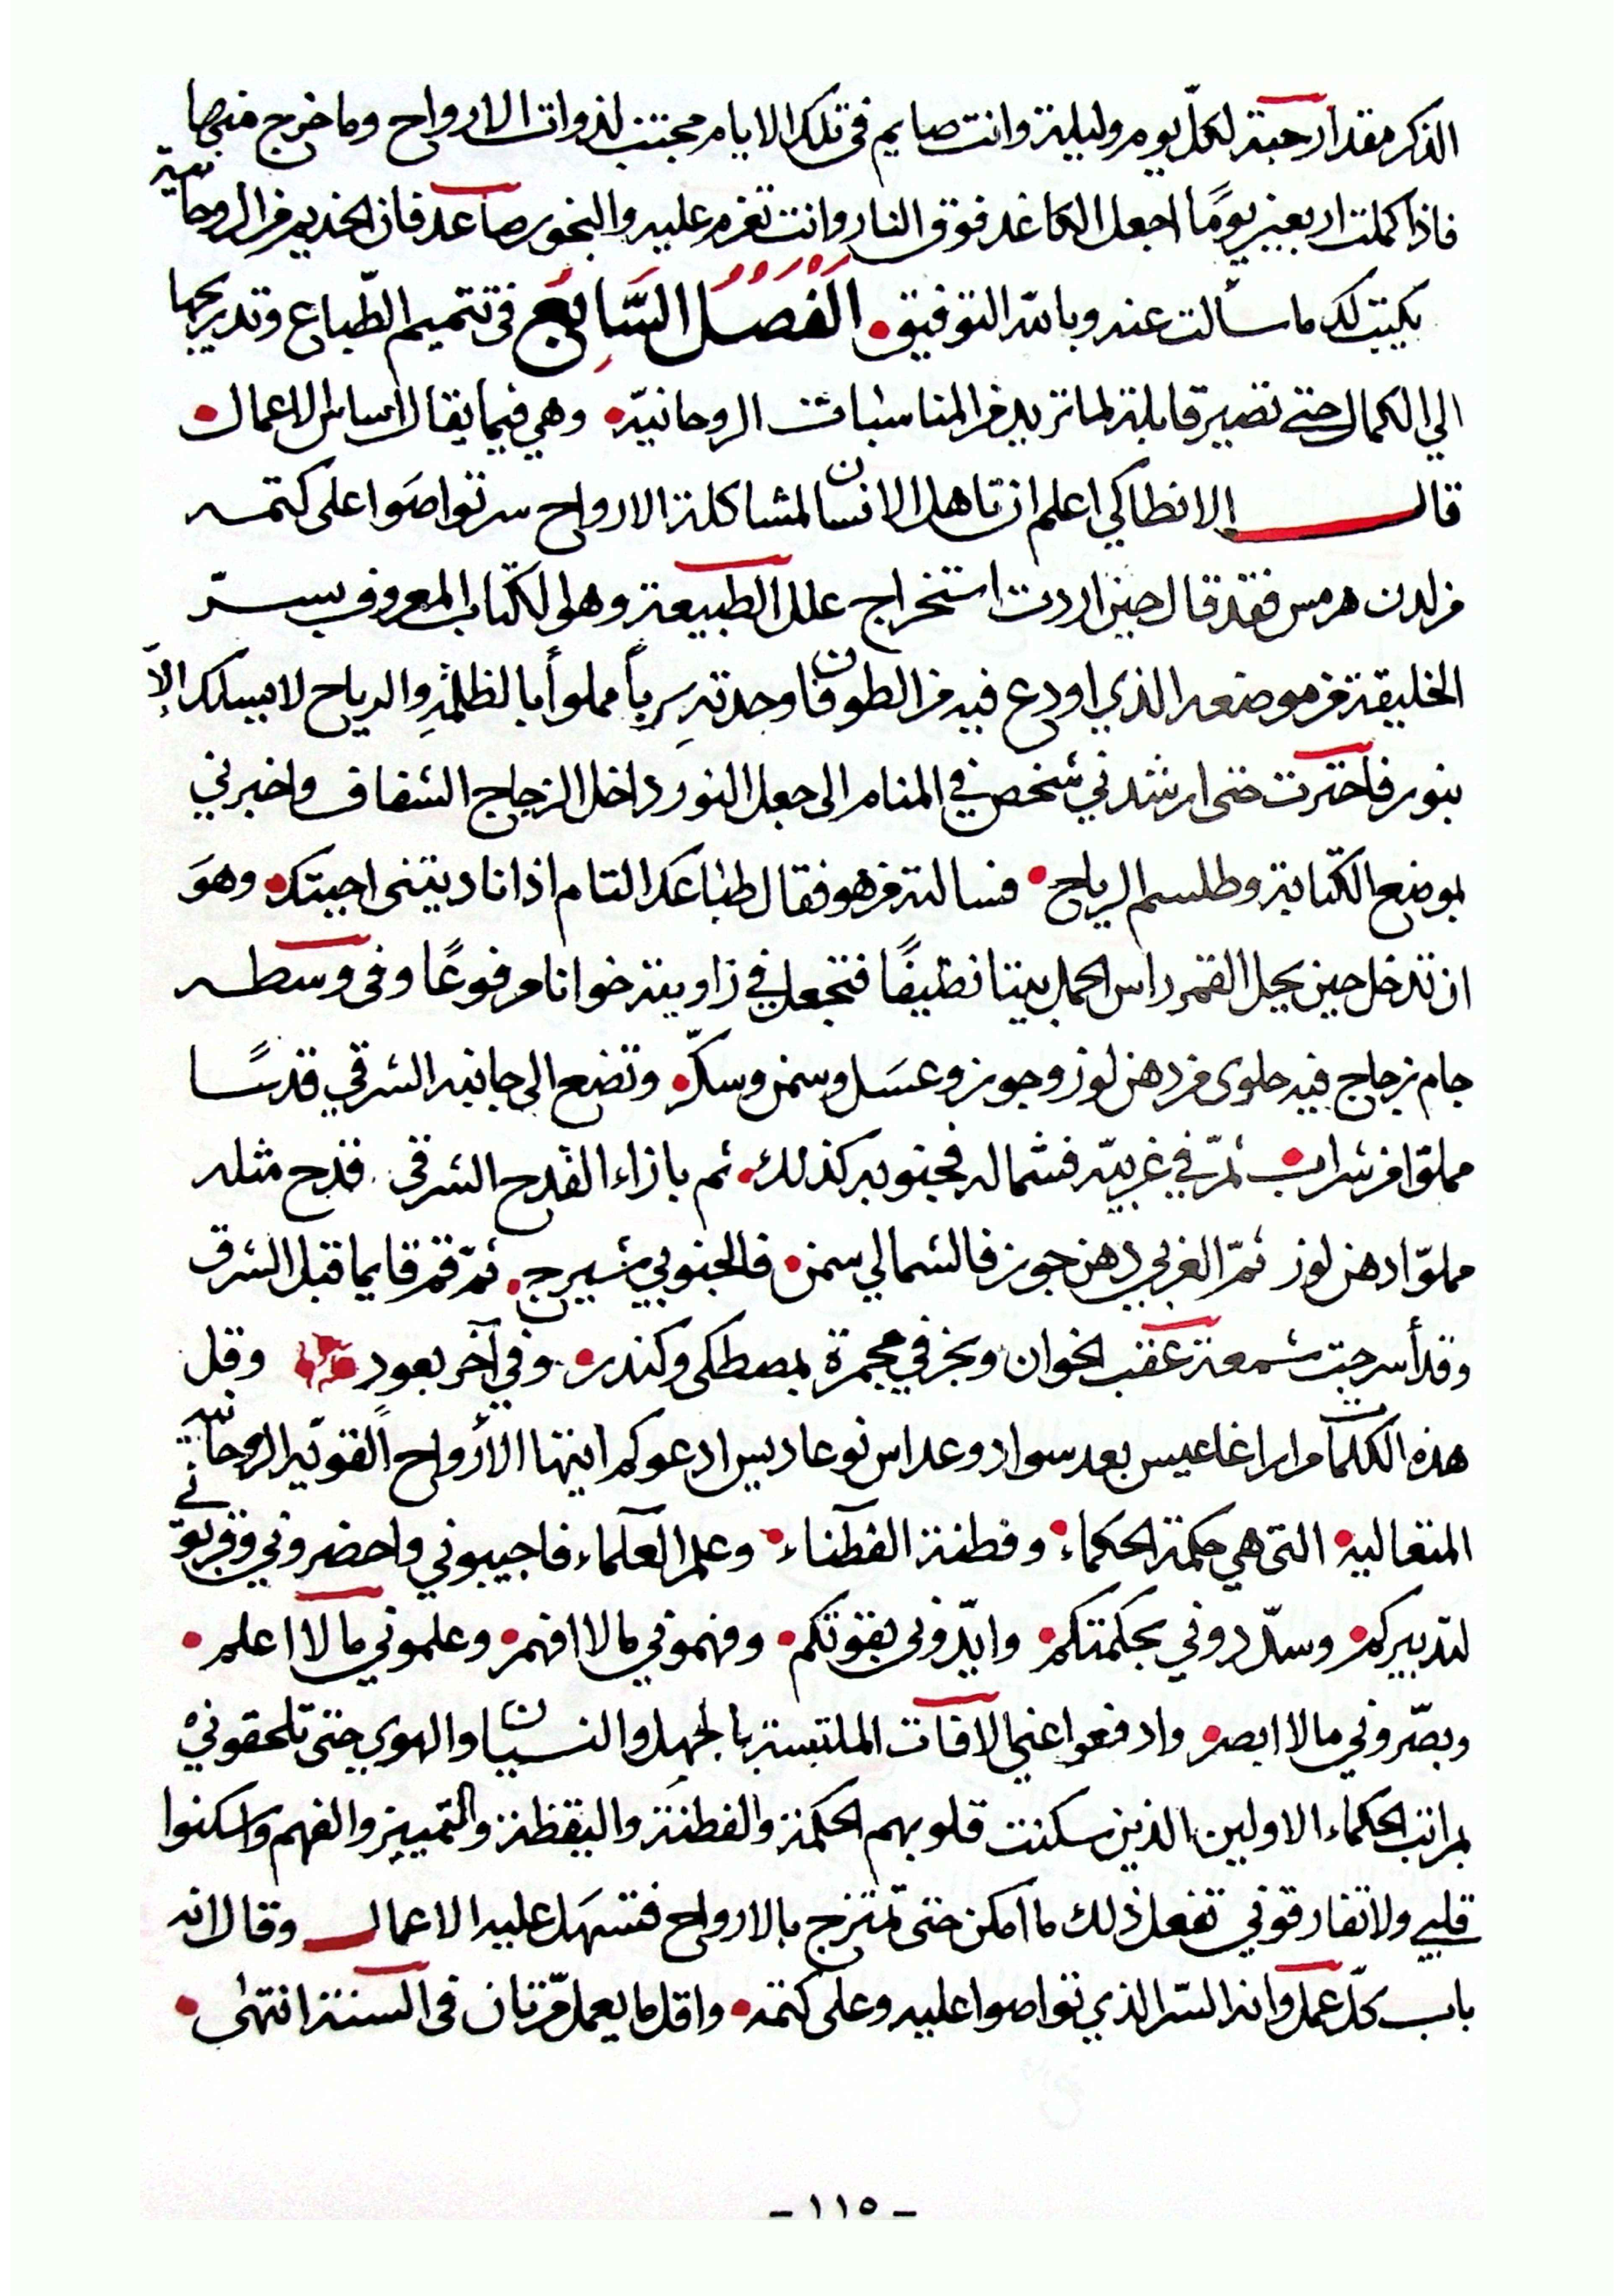 الذكر مقدار حبة لكلّ يوم وليلة وانت صايم في تلك الايام مجتنب لذوات الارواح وما خرج منها
فاذا كملت اربعين يومًا اجعل الكاغد فوق النار وانت تعزم عليه والبخور صاعد فان الخديم من الروحانية
يكتب لك ما سألت عنه وبالله التوفيق • الفَصْلُ السَّابِعُ في تتميم الطّباع وتدريجها
الي الكمال حتى تصير قابلة لما تريد من المناسبات الروحانيّة • وهي فيما يقال اساس الاعمال •
قال الانطاكي اعلم ان تاهل الانسان لمشاكلة الارواح سر تواصَوا على كتمه
من لدن هرمس فقد قال حين اردت استخراج علل الطبيعة وهو الكتاب المعروف بسرّ
الخليقة من موضعه الذي اودع فيه من الطوفان وجدته سِرباً مملوأ بالظلمةِ والرياح لا يسلك الاّ
بنور فاخترت حتى ارشدني شخص في المنام الى جعل النور داخل الزجاج الشفاف واخبرني
بوضع الكتابة وطلسم الرياح • فسالته من هو فقال طباعك التام اذا ناديتنى اجبتك • وهوَ
ان تدخل حين يحل القمر راس الحمل بيتا نظيفًا فتجعل في زاويته خوانا مرفوعًا وفى وسطه
جام زجاج فيه حلوى من دهن لوز وجوز وعسَل وسمن وسكّر • وتضع الى جانبه الشرقي قدسًا
مملوّا من شراب • ثمّ في غربيّه فشماله فجنوبه كذلك • ثم بازاء القدح الشرقي قدح مثله
مملوّا دهن لوز ثمّ الغربي دهن جوز فالشمالي سمن • فالجنوبي شيرج • ثمّ قم قايما قبل الشرق
وقد أسرجت شمعة عقب الخوان وبخر في مجمرة بمصطكى وكندر • وفي آخر بعود وقل
هذه الكلمات مرارا غاعيس بعد سواد وعداس نوعاديس ادعوكم ايتها الأرواح القويّة الروحانية
المتعالية • التى هي حكمة الحكماء • وفطنة الفطناء • وعلم العلماء فاجيبوني واحضروني وقربوني
لتدبيركم • وسدّدوني بحكمتكم • وايّدونى بقوتكم • وفهموني ما لا افهم • وعلموني ما لا اعلم •
وبصّروني ما لا ابصر • وادفعوا عني الافات الملتبسة بالجهل والنسيان والهوي حتى تلحقوني
بمراتب الحكماء الاولين الذين سكنت قلوبهم الحكمة والفطنة واليقظة والتمييز والفهم واسكنوا
قلبي ولا تفارقوني تفعل ذلك ما امكن حتى تمتزج بالارواح فتسهَل عليه الاعمال وقال انه
باب كلّ عمل وانه السّر الذي تواصوا عليه وعلى كتمه • واقل ما يعمل مرّتان فى السنة انتهى •
- ١١٥ -